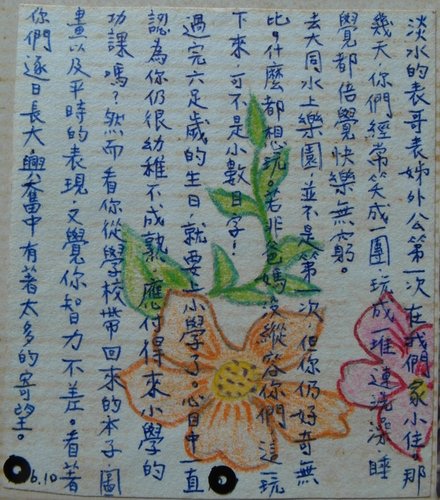 淡水的表哥表姊外公第一次在我們家小住。那
幾天你們經常笑成一團玩成一堆連洗澡睡
覺都倍覺快樂無窮。
去大同水上樂園並不是第一次但你仍好奇無
比，什麼都想玩。若非爸媽沒縱容你們，這一玩
下來，可不是小數目字！
過完六足歲的生日，就要上小學了。心目中一直
認為你仍很幼稚不成熟，應付得來小學的
功課嗎？然而看你從學校帶回來的本子圖
畫以及平時的表現，又覺你智力不差。看著
你們逐日長大，興奮中有著太多的寄望。
6.10